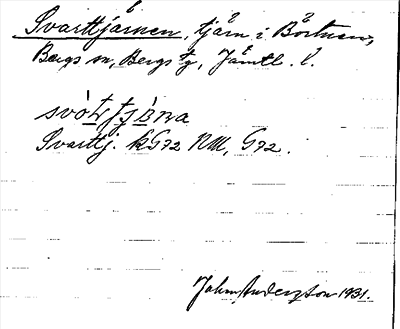 Svarttjärnen, tjärn i Börtnen,
Bergs sn, Bergs tg, Jämtl. l.
Svarttj. kG72 RM, G72.
John Anderzon 1931.